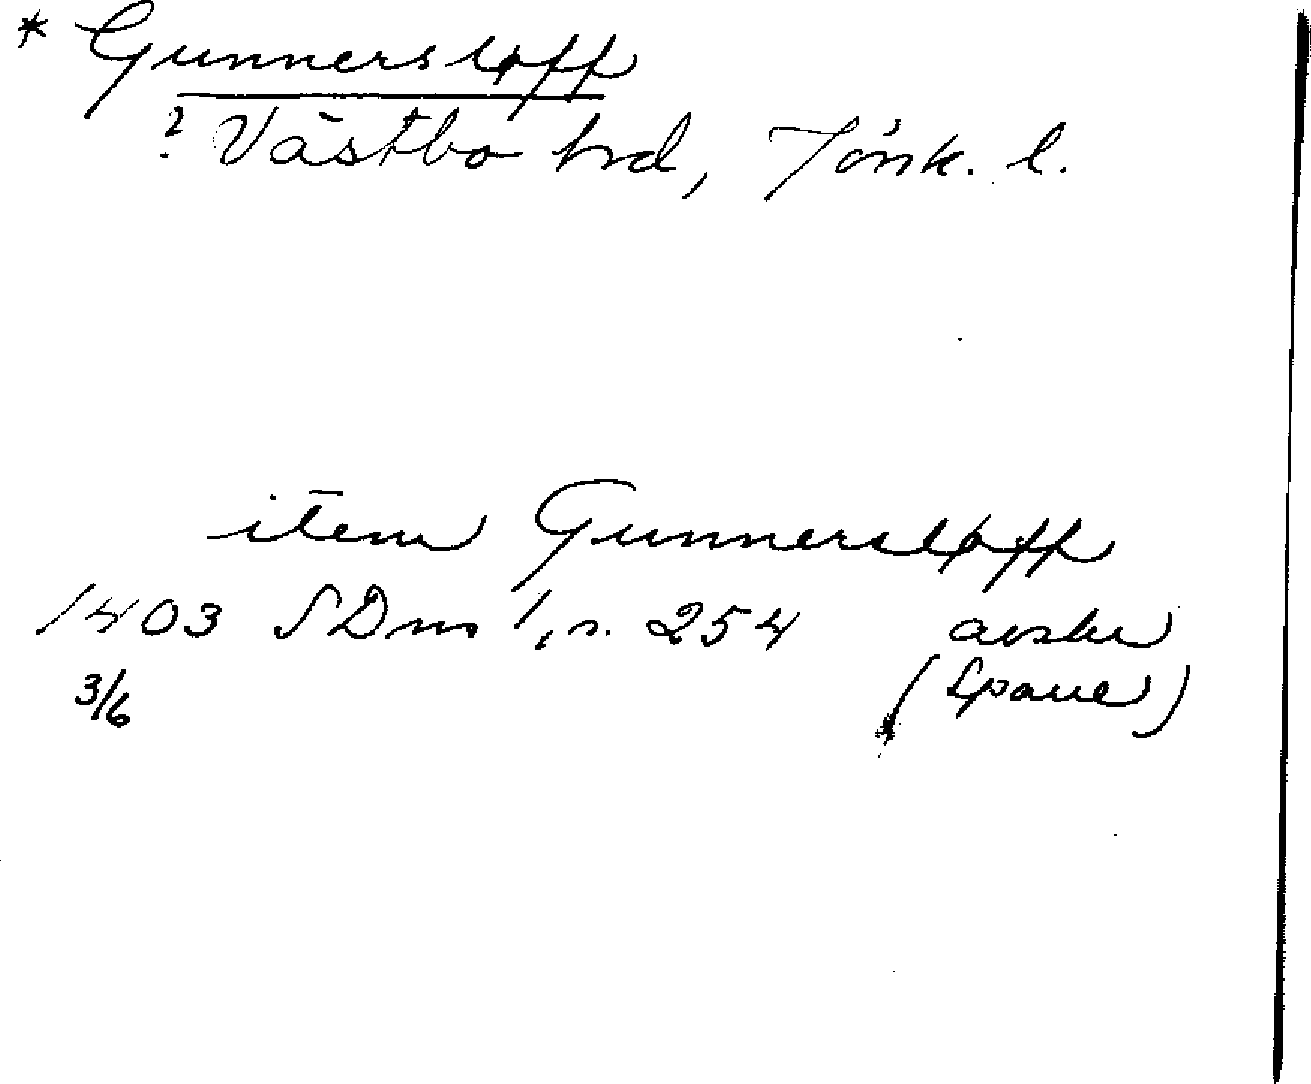 * Gunnersløff
? Västbo hd, Jönk. l.
item Gunnersløff
1403 SDns 1, s. 254 avskr
3/6 (Spaue)